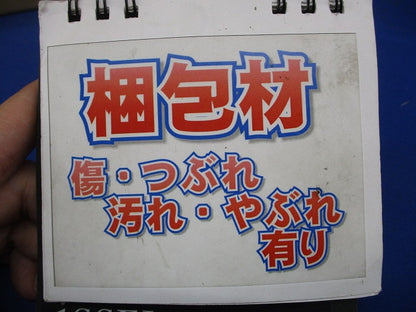 梱包材
傷・つぶれ
汚れ・やぶれ
有り